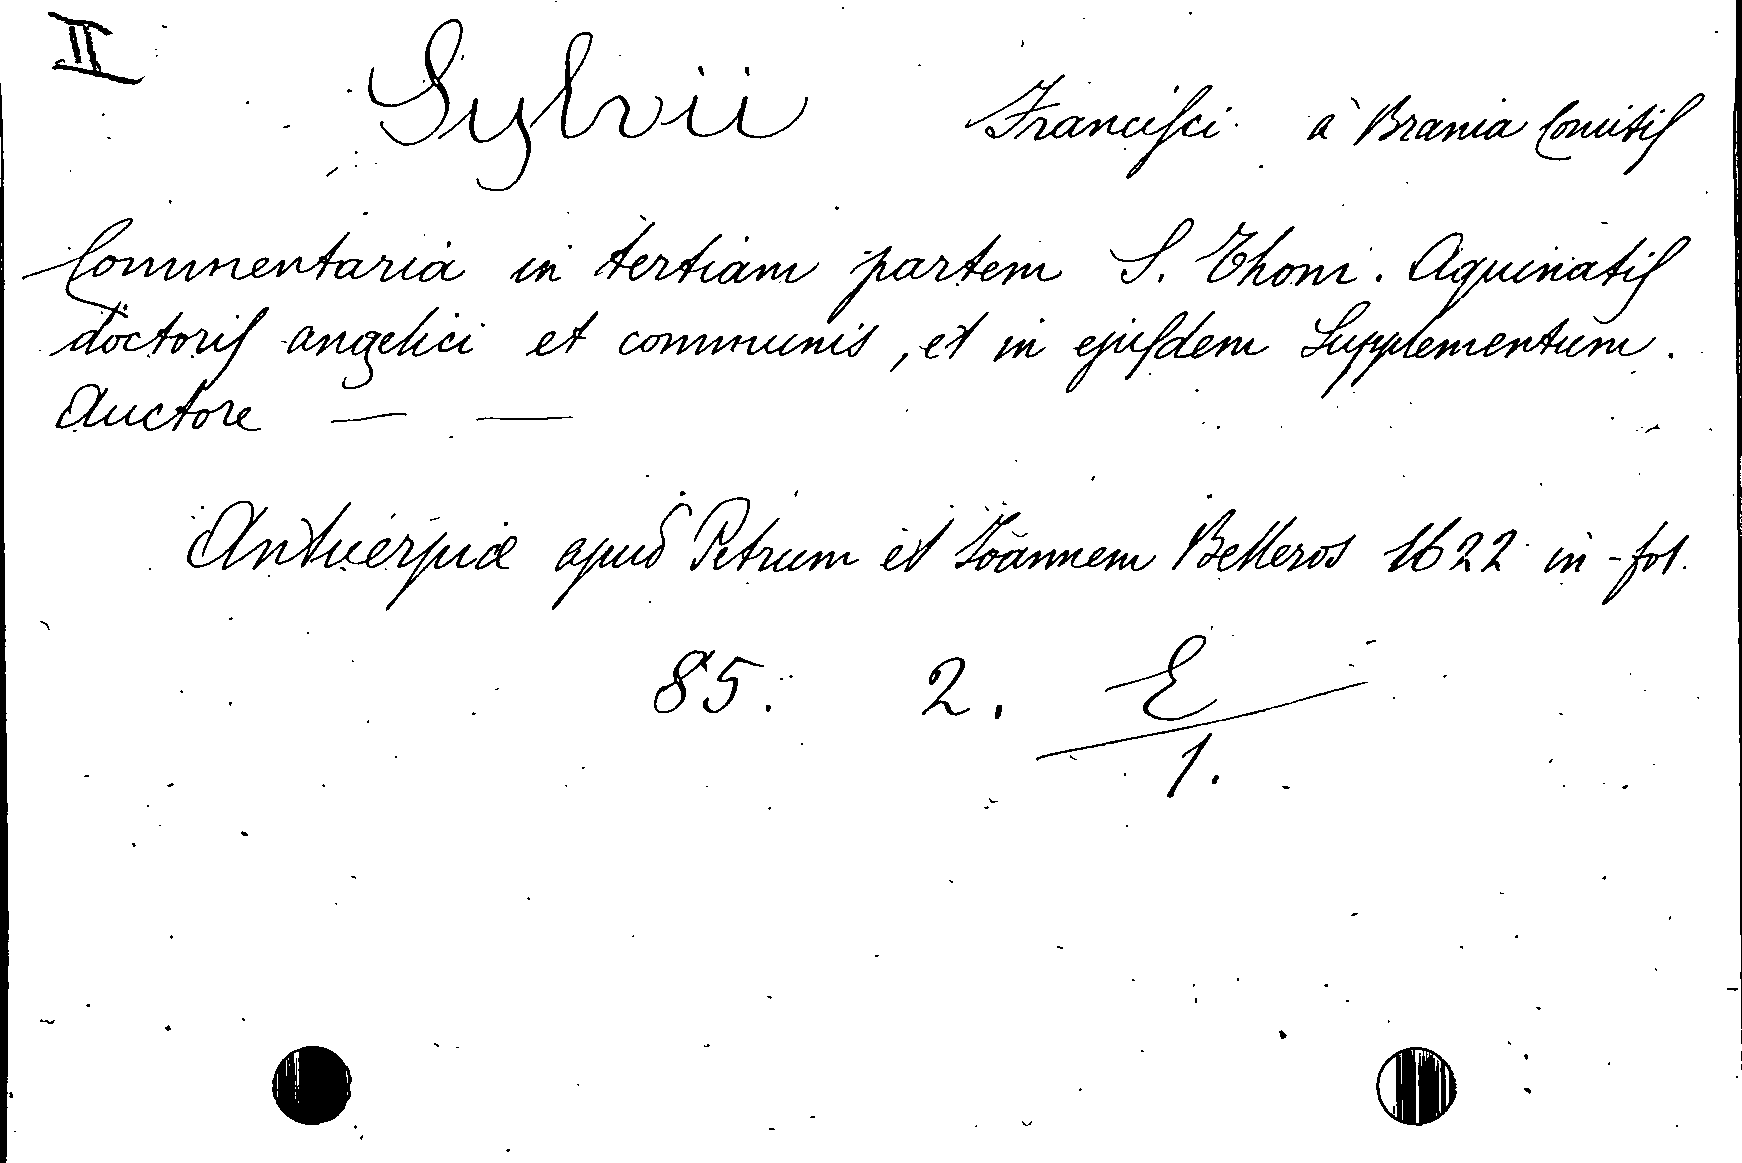 II
Sylvii Francisci à Brania Comitis
Commentaria in tertiam partem S. Thom. Aquinatis
doctoris angelici et communis, et in ejusdem Supplementum.
Auctore — —
Antverpiæ apud Petrum et Joannem Belleros 1622 in-fol.
85. 2. E
1.